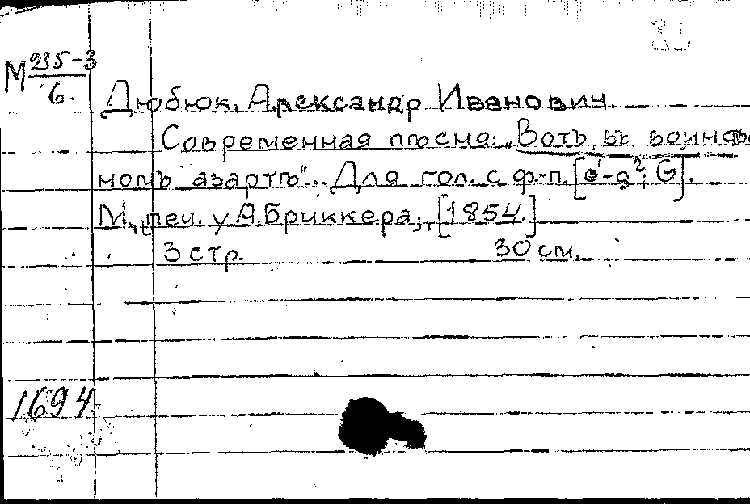 М 235-3
6.
Дюбюк, Александр Иванович
Современная пѣсня: „Вотъ въ воинствен
номъ азартѣ". Для гол. с ф-п. [e¹-g²; G].
М., печ. у А. Бриккера, [1854.]
3 стр. 30 см.
1694